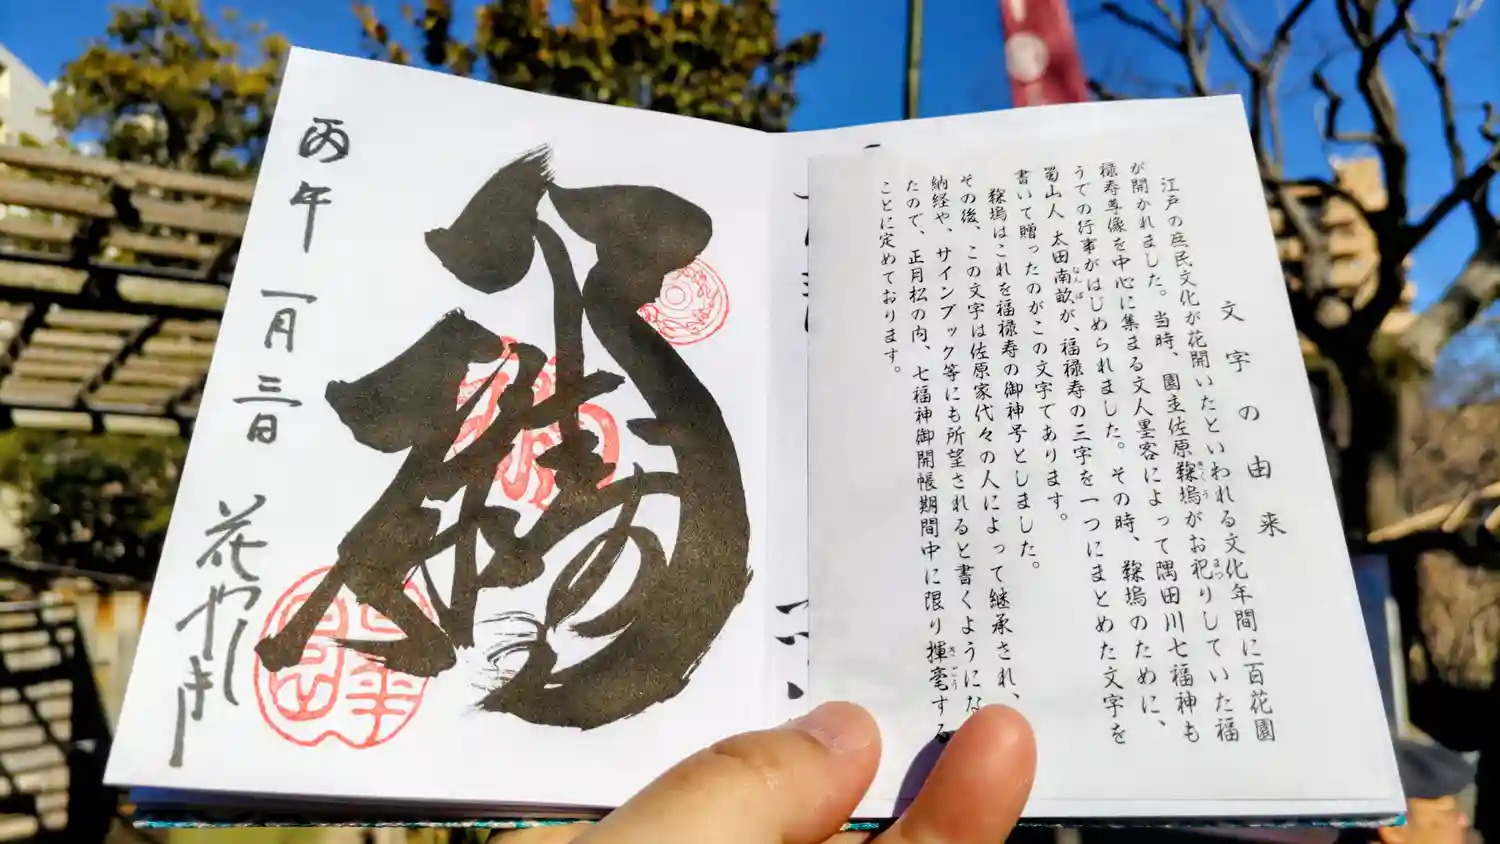 文字の由来
江戸の庶民文化が花開いたといわれる文化年間に百花園
が開かれました。当時、園主佐原鞠塢がお祀りしていた福
禄寿尊像を中心に集まる文人墨客によって隅田川七福神も
うでの行事がはじめられました。その時、鞠塢のために、
蜀山人 太田南畝が、福禄寿の三字を一つにまとめた文字を
書いて贈ったのがこの文字であります。
鞠塢はこれを福禄寿の御神号としました。
その後、この文字は佐原家代々の人によって継承され、
納経や、サインブック等にも所望されると書くようにな
たので、正月松の内、七福神御開帳期間中に限り揮毫する
ことに定めております。
丙午 一月三日 花やしき